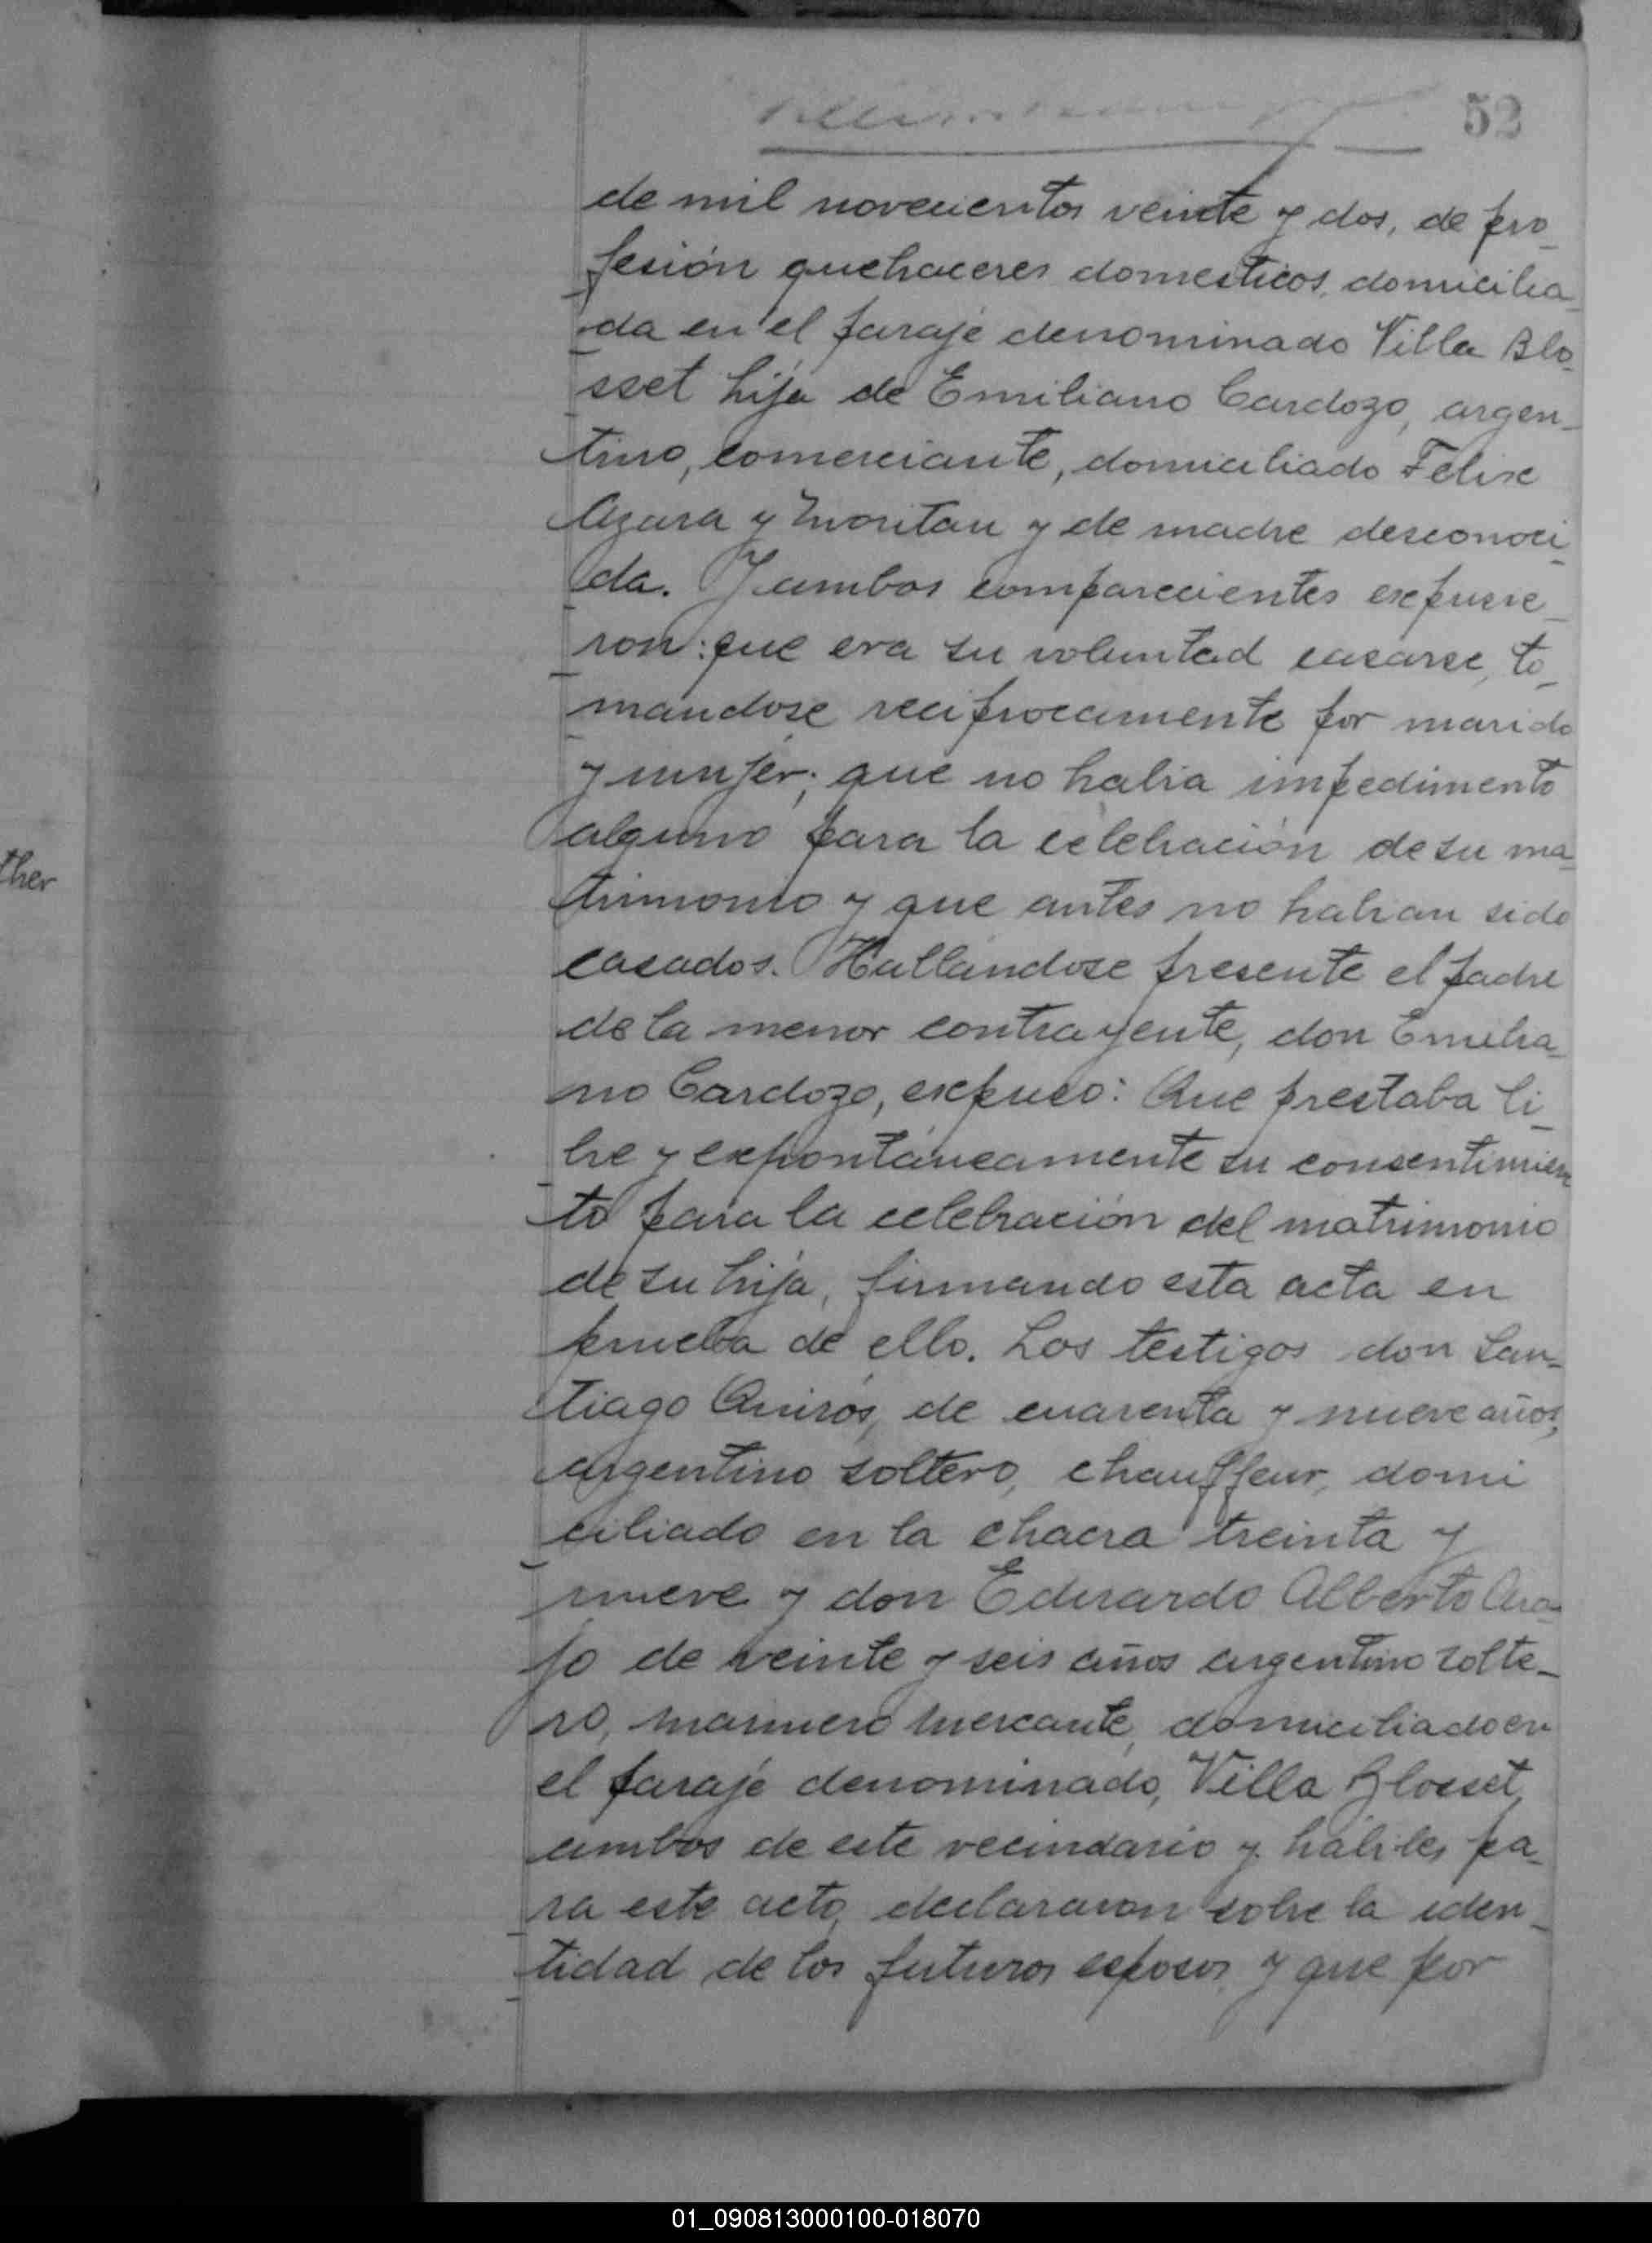 52
de mil novecientos veinte y dos, de pro_
fesión quehaceres domesticos, domicilia_
da en el paraje denominado Villa Blo_
sset hija de Emiliano Cardozo, argen_
tino, comerciante, domiciliado Felix
Azara y y de madre desconoci_
da. Y ambos comparecientes expusie_
ron: que era su voluntad casarse, to_
mandose reciprocamente por marido
y mujer; que no habia impedimento
alguno para la celebración de su ma_
trimonio y que antes no habian sido
casados. Hallándose presente el padre
de la menor contrayente, don Emilia_
no Cardozo, expuso: Que prestaba li_
bre y expontáneamente su consentimien
to para la celebración del matrimonio
de su hija, firmando esta acta en
prueba de ello. Los testigos don San_
tiago Quirós, de cuarenta y nueve años,
argentino soltero, chauffeur, domi
ciliado en la chacra treinta y
nueve y don Eduardo Alberto Ara_
jo de veinte y seis años argentino solte_
ro, marinero mercante, domiciliado en
el paraje denominado, Villa Blosset,
ambos de este vecindario y hábiles pa_
ra este acto, declararon sobre la iden_
tidad de los futuros esposos, y que por
ther
01_090813000100-018070